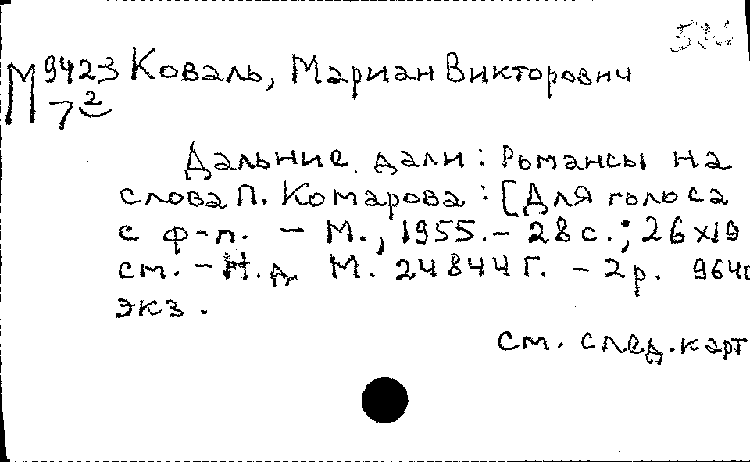 М 9423 Коваль, Мариан Викторович
7²
Дальние дали: Романсы на
слова П. Комарова: [Для голоса
с ф-п. - М., 1955. - 28 с.; 26х19
см. - Н.д. М. 24844 Г. - 2р. 964
экз.
см. след. карт